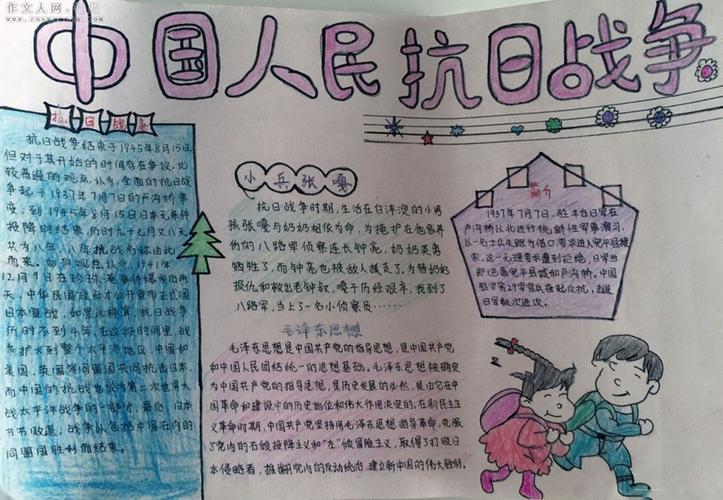 作文人网
中国人民抗日战争
抗日战争
抗日战争结束于1945年8月15日,
但对于其开始的时间存在争议,比
较普遍的观点认为,全面的抗日战
争起于1937年7月7日的卢沟桥事
变,到1945年8月15日日本无条件
投降时结束,历时九个月又八天
称为八年,八年抗战名称由此
而来。
12月9日在珍珠港事件爆发后两
天,中华民国政府才公开宣布正式国
日本宣战,如果这样算,抗日战争
历时不到4年,在这段时间里,战
兵扩大到整个太平洋地区,中国和
美国,英国等同盟国共同抗击日本,
而中国的抗战也成为第二次世界大
战太平洋战争的一部分,最后,日本
节节败退,战争以包括中国在内的
同盟国胜利而结束。
小兵张嘎
抗日战争时期,生活在白洋淀的小男
孩张嘎与奶奶相依为命,为掩护在他家养
伤的八路军侦察连长钟亮,奶奶英勇
牺牲了,而钟亮也被敌人抓走了,为替奶奶
报仇和救出老钟叔,嘎子历经艰辛,找到了
八路军,当上了一名小侦察员……
毛泽东思想
毛泽东思想是中国共产党的指导思想,是中国共产党
和中国人民团结统一的思想基础。毛泽东思想被确定
为中国共产党的指导思想,是历史发展的必然,是由它在中
国革命和建设中的历史地位和伟大作用决定的,在新民主主
义革命时期,中国共产党坚持用毛泽东思想指导革命,克服
了党内的右倾投降主义和"左"倾冒险主义,取得了打败日
本侵略者,推翻国内的反动统治,建立新中国的伟大胜利。
简介
1937年7月7日,驻丰台日军在
卢沟桥以北进行挑衅性军事演习,
以一名士兵失踪为借口,要求进入宛平县搜
索,这一无理要求遭到拒绝,日军当
即炮轰宛平县城和卢沟桥。中国
驻军第29军官兵在起反抗,击退
日军数次进攻。